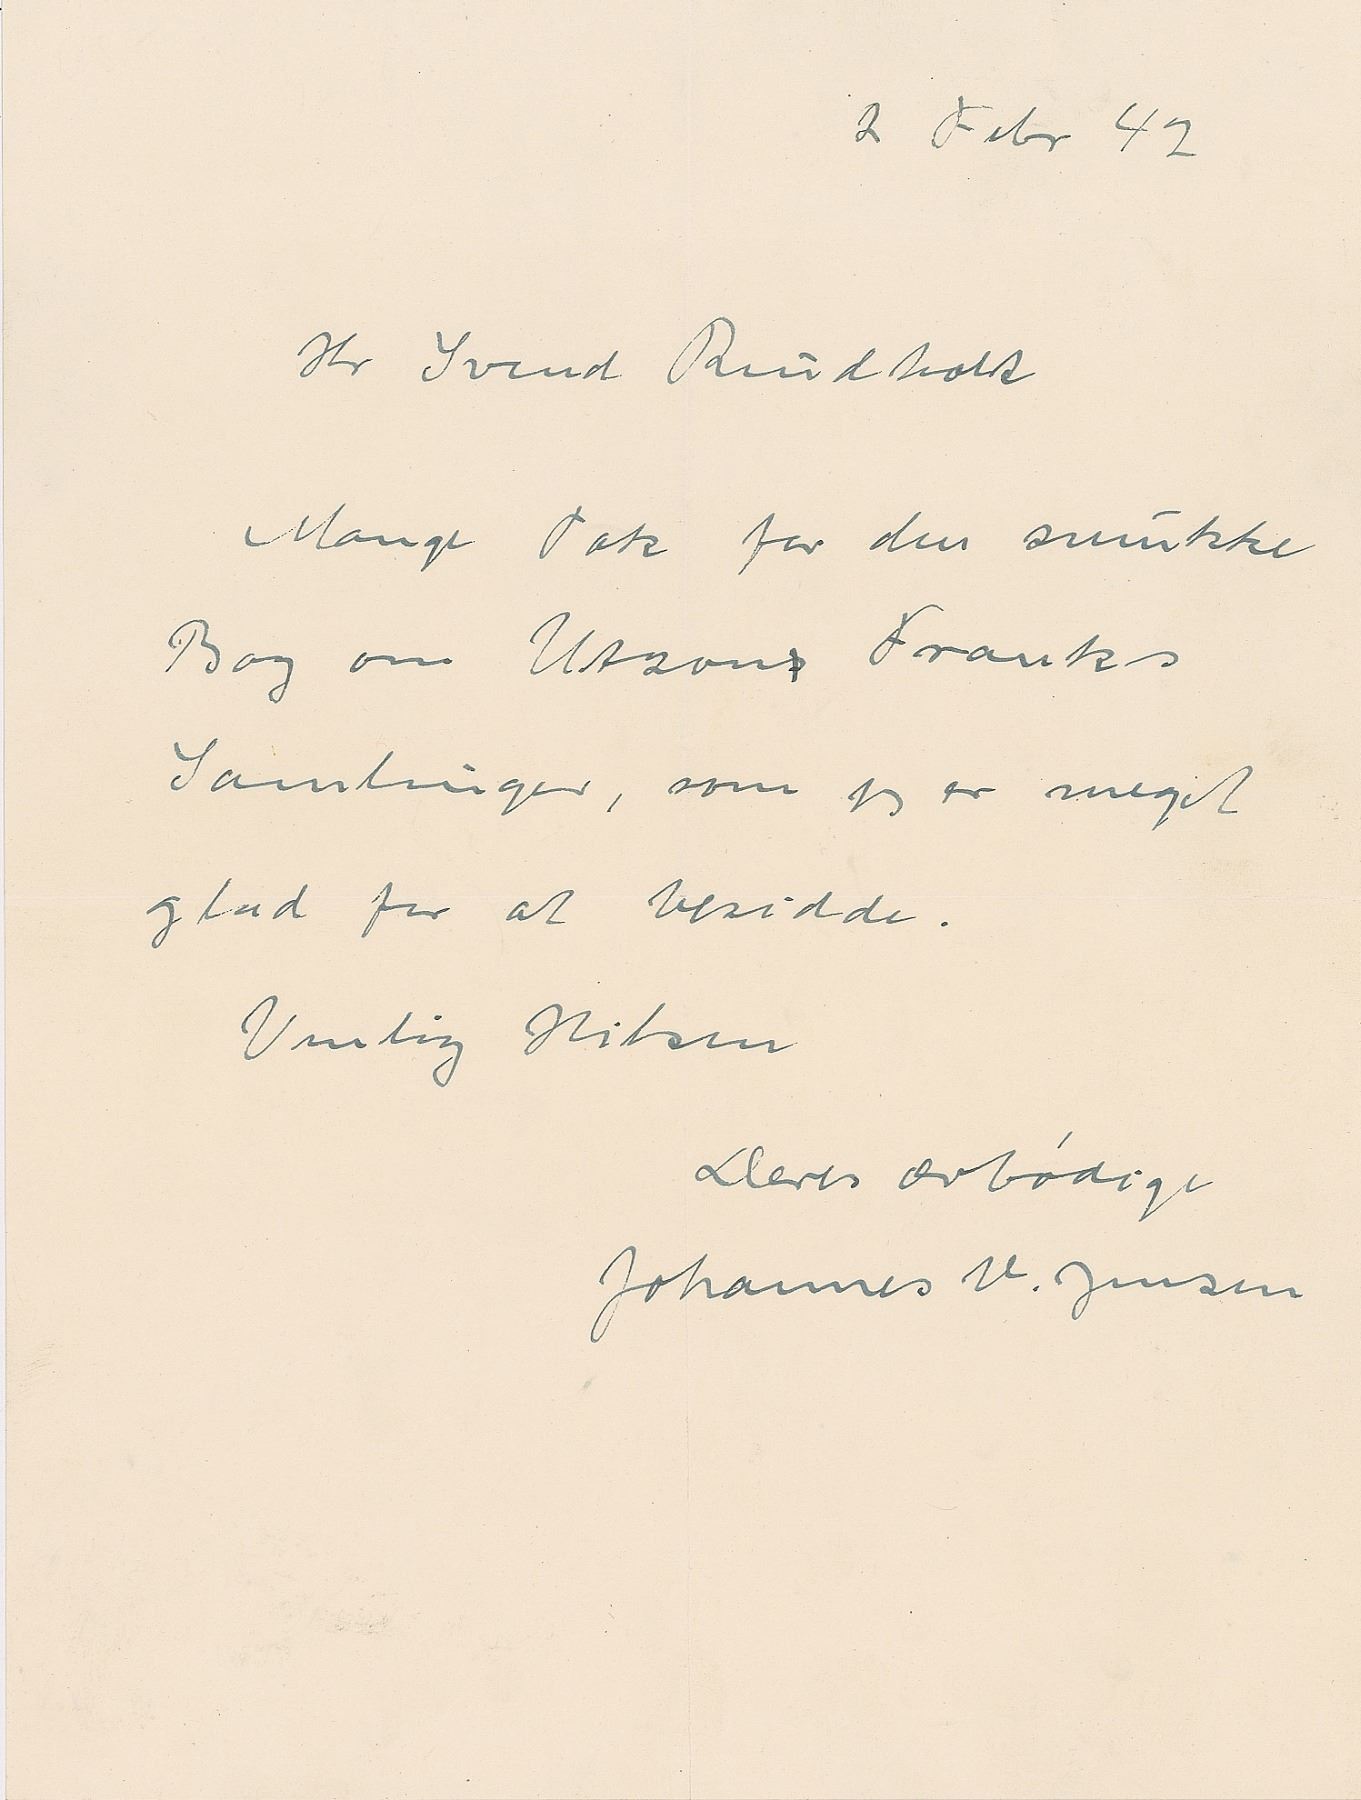 2 Febr 42
Hr Svend Rindholt
Mange Tak for den smukke
Bog om Utzon Franks
Samlinger, som jeg er meget
glad for at besidde.
Venlig Hilsen
Deres ærbødige
Johannes V. Jensen